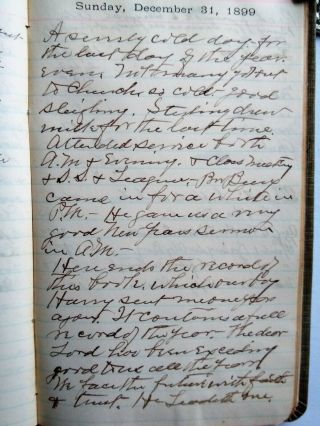 Sunday, December 31, 1899
A severely cold day for
the last day of the year.
Even. Not many out
to Church, so cold - good
sleighing. Sterling drew
milk for the last time.
Attended service both
A.M & Evening. & Class Meeting
& S.S. & League. Bro
came in for a while in
P.M. - He gave us a very
good New Years sermon
in A.M. -
Here ends the record of
this book. which our boy
Harry sent me one for
again. It contains a full
record of the year. The dear
Lord has been exceeding
good to us all the year
We face the future with faith
& trust. He Leadeth me.